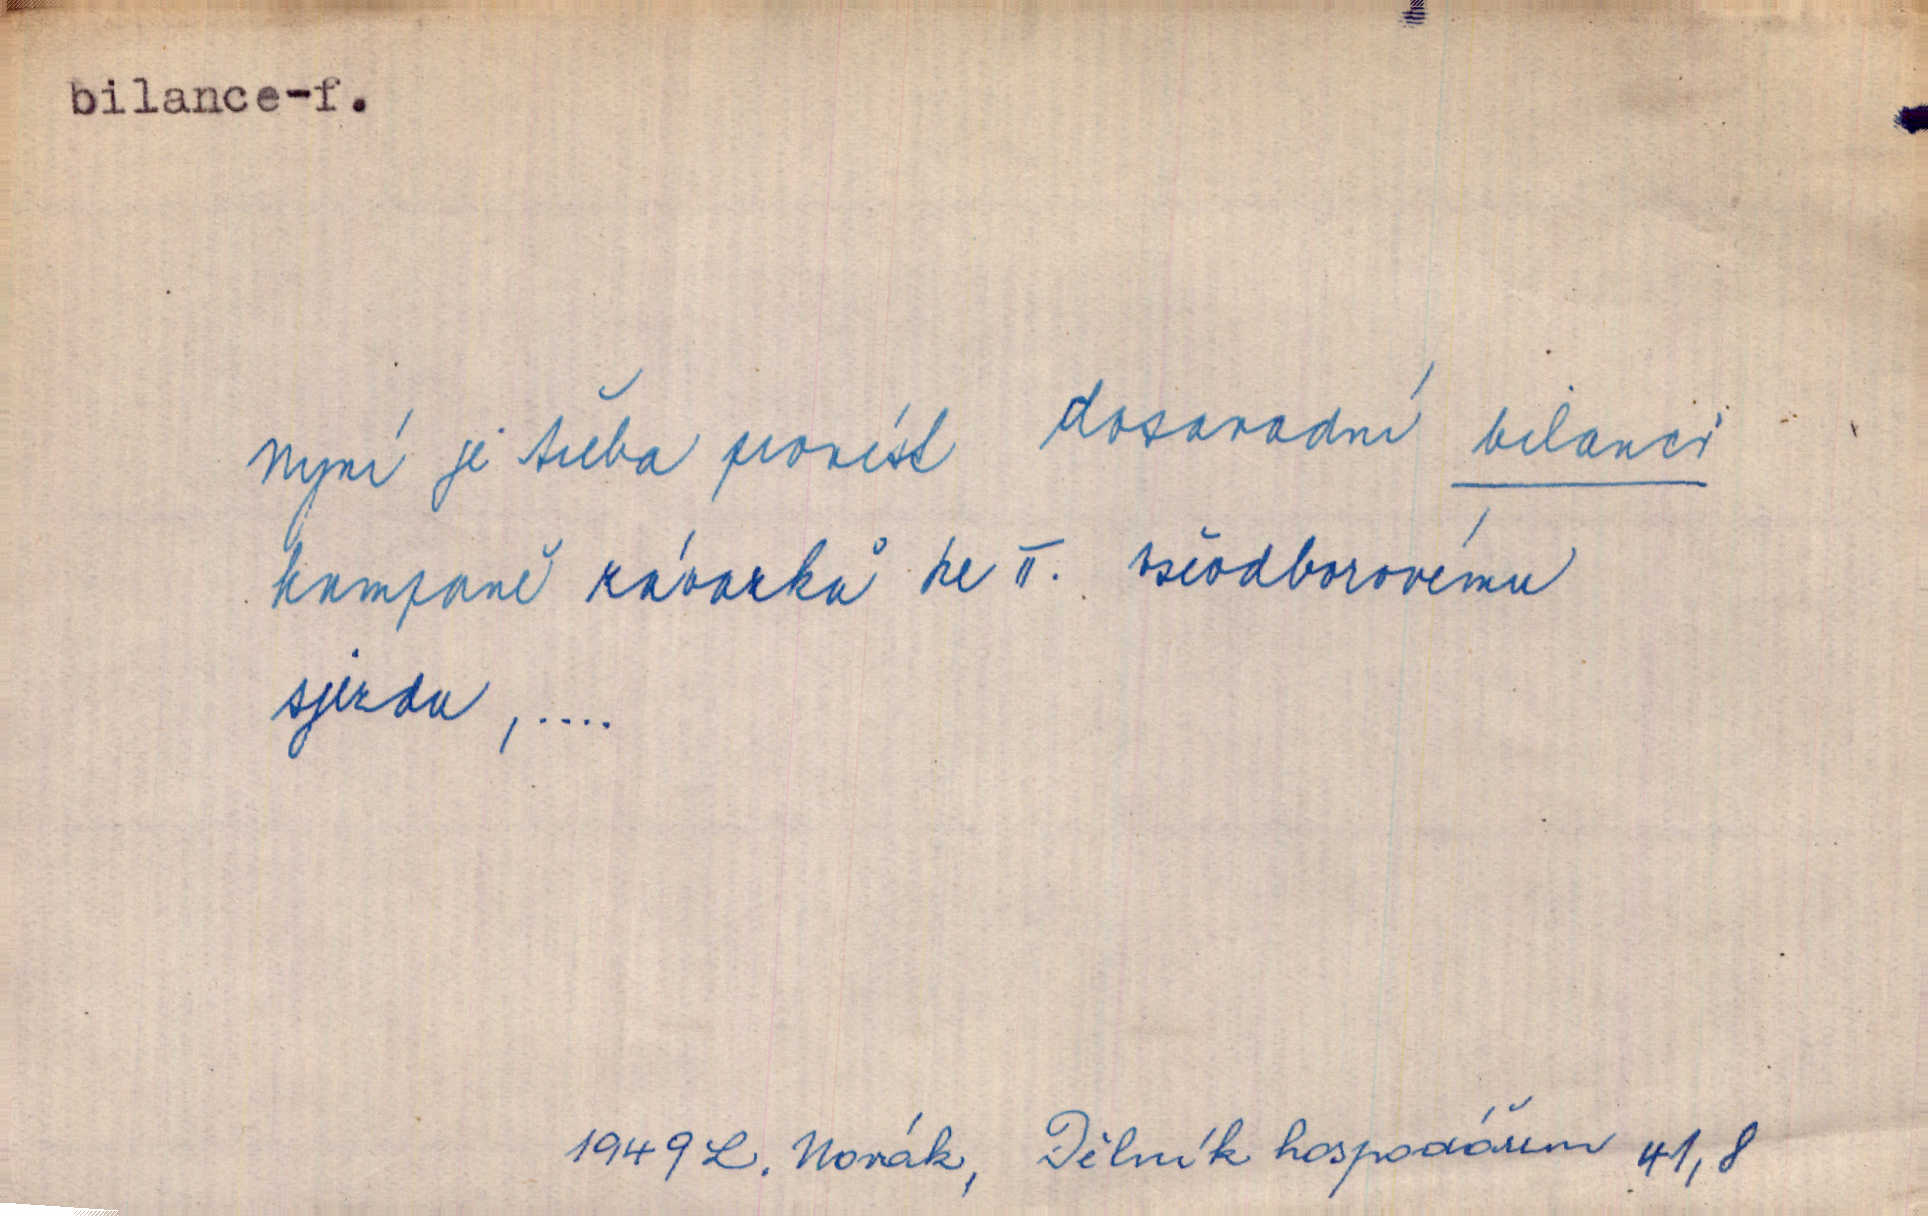 bilance-f.
Nyní je třeba provést dosavadní bilanci
kampaně závazků ke II. všeodborovému
sjezdu, ....
1949 L. Novák, Dělník hospodářem 41, 8